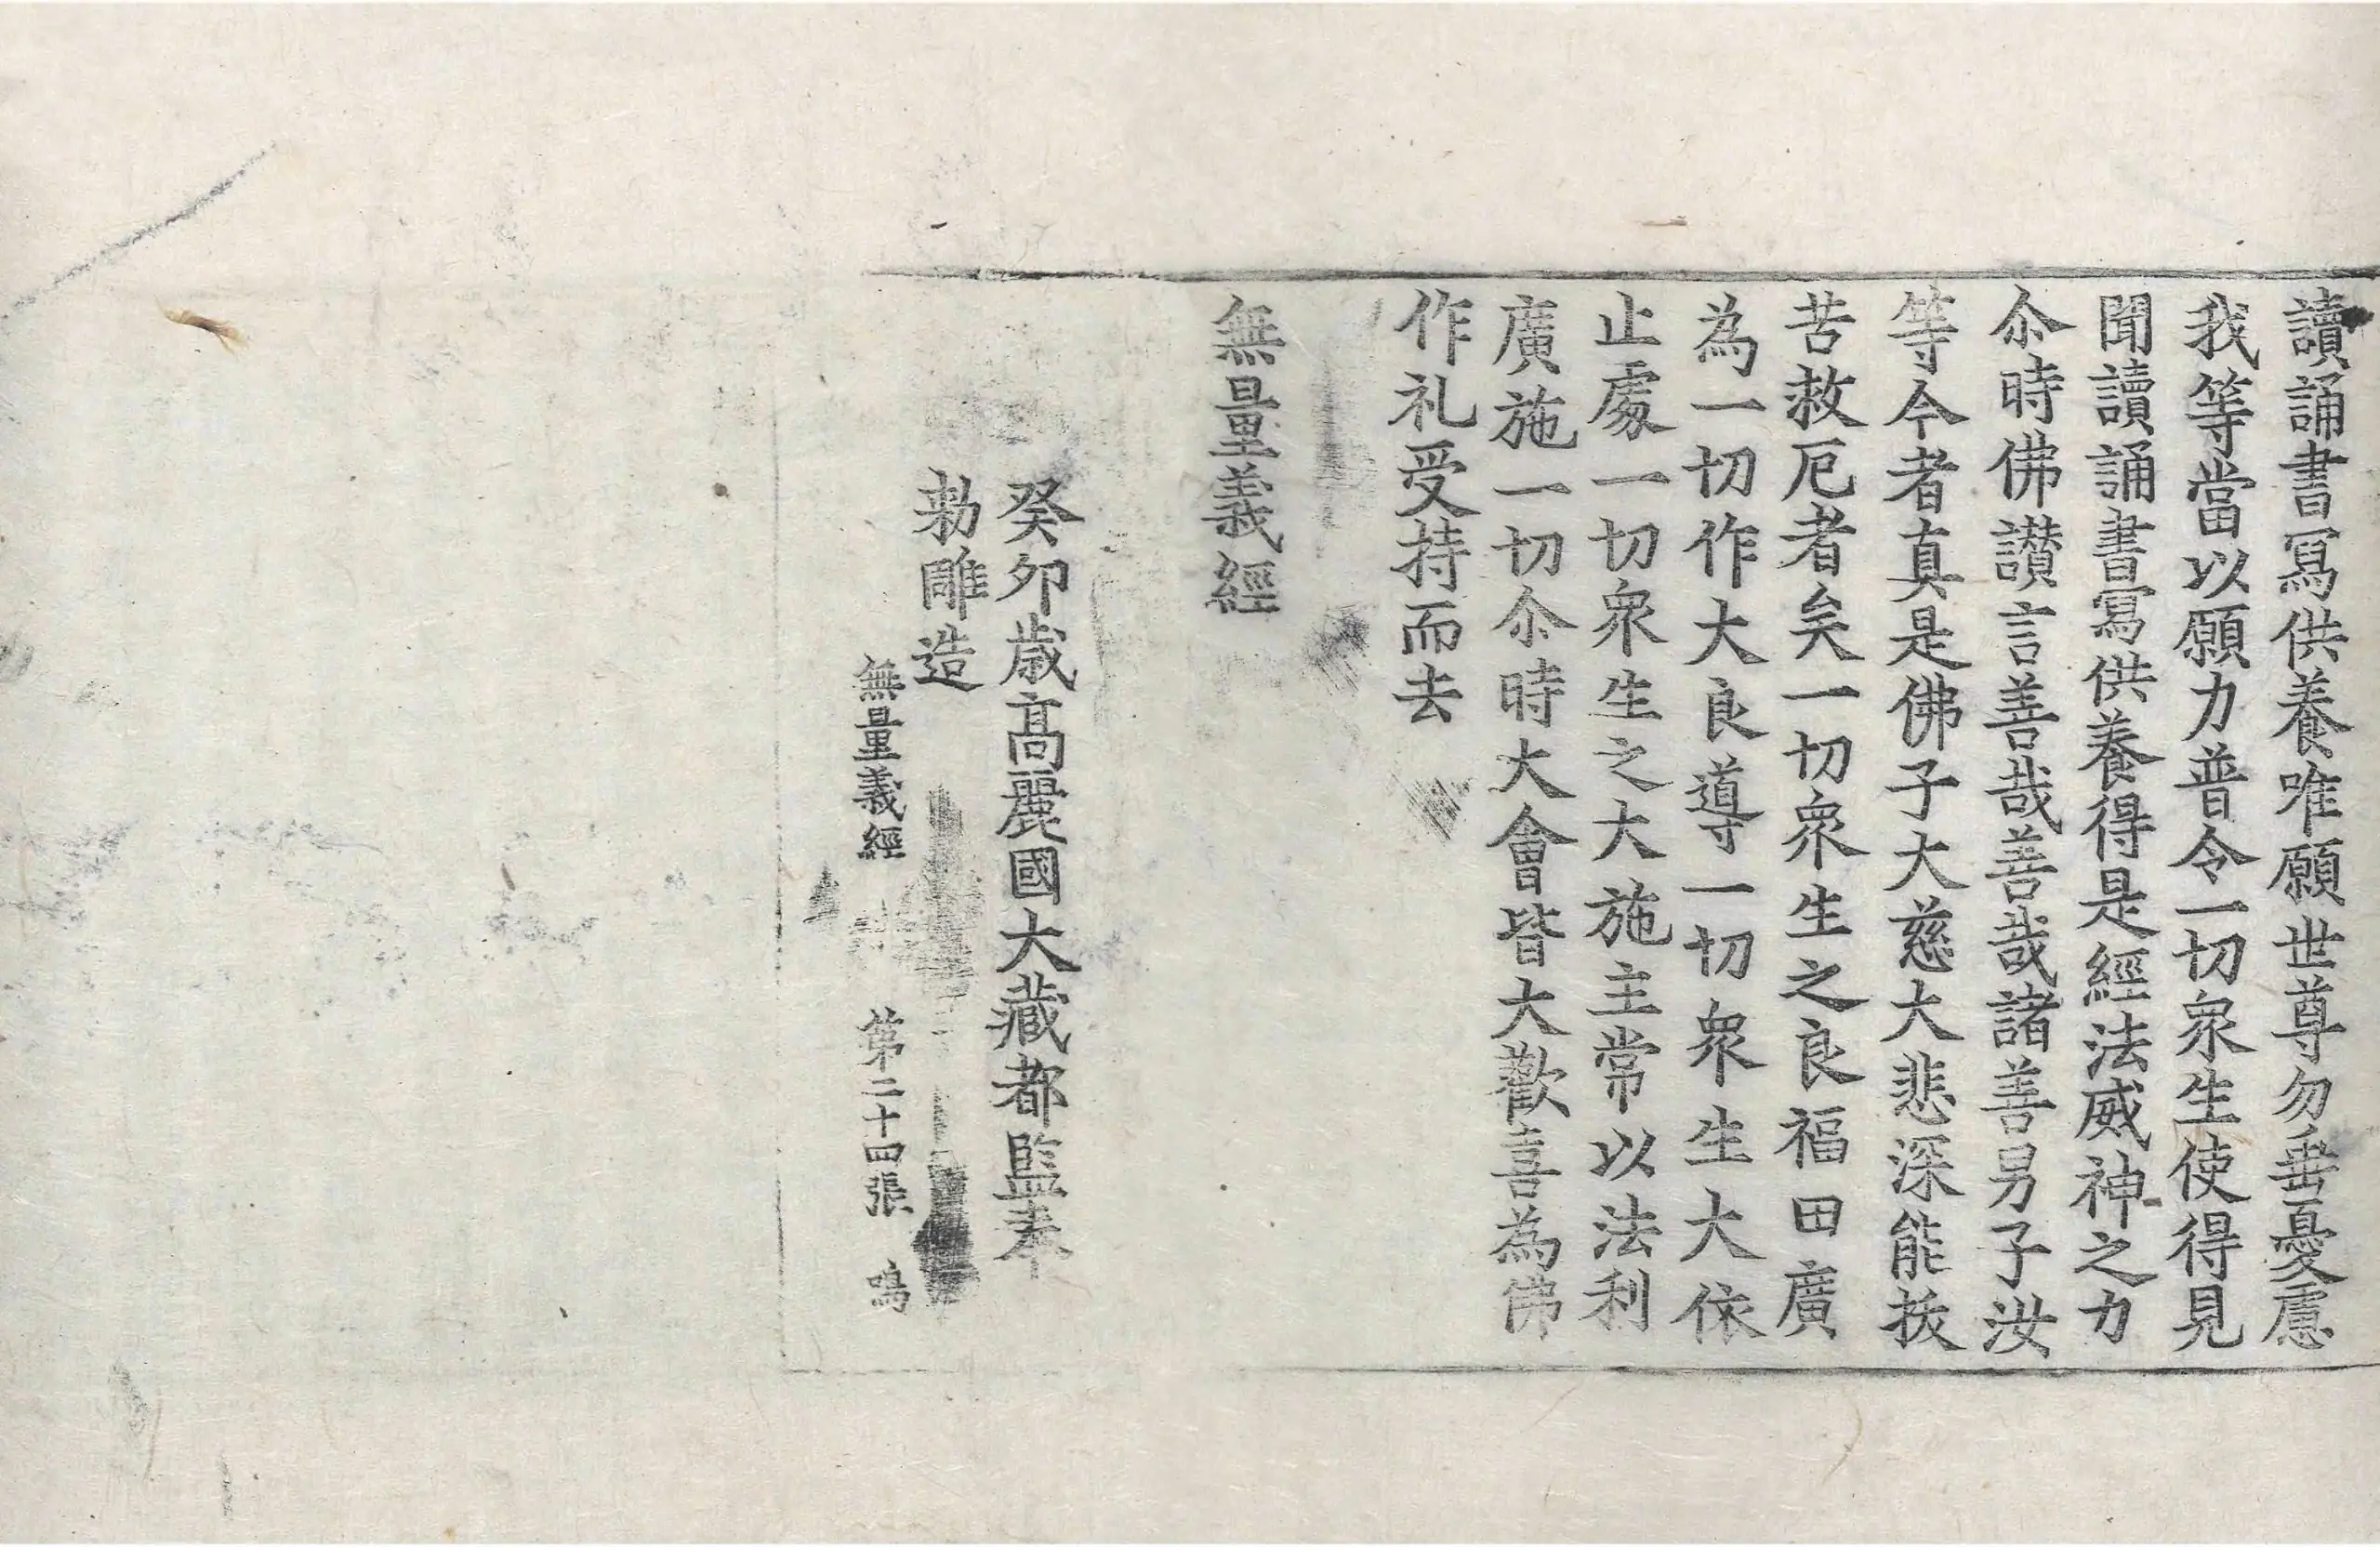 讀誦書寫供養唯願世尊勿垂憂慮
我等當以願力普令一切衆生使得見
聞讀誦書寫供養得是經法威神之力
尒時佛讃言善哉善哉諸善男子汝
等今者真是佛子大慈大悲深能拔
苦救厄者矣一切衆生之良福田廣
為一切作大良導一切衆生大依
止處一切衆生之大施主常以法利
廣施一切尒時大會皆大歡喜為佛
作礼受持而去
無量義經
癸卯歲高麗國大藏都監奉
勅雕造
無量義經 第二十四張 鳴